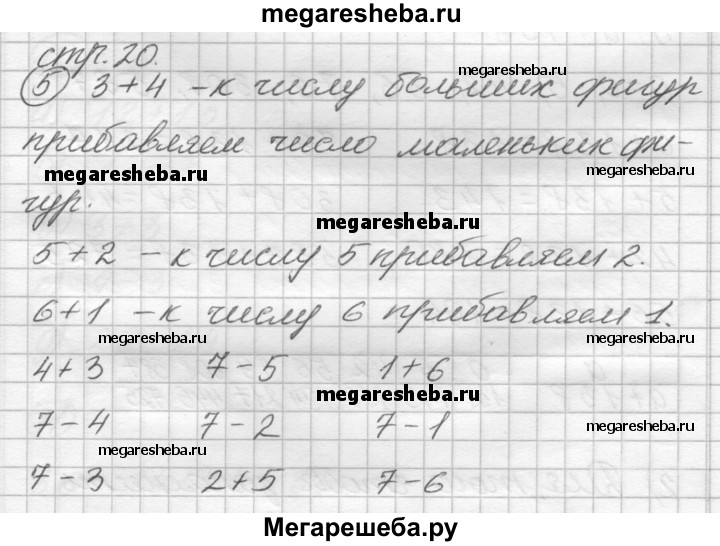 megaresheba.ru
стр. 20.
⑤ 3+4 – к числу больших фигур
megaresheba.ru
прибавляем число маленьких фи-
megaresheba.ru megaresheba.ru
гур.
megaresheba.ru
5+2 – к числу 5 прибавляем 2.
6+1 – к числу 6 прибавляем 1.
megaresheba.ru megaresheba.ru
4+3 7–5 1+6
megaresheba.ru
7–4 7–2 7–1
megaresheba.ru
megaresheba.ru
7–3 2+5 7–6
megaresheba.ru
Мегарешеба.ру